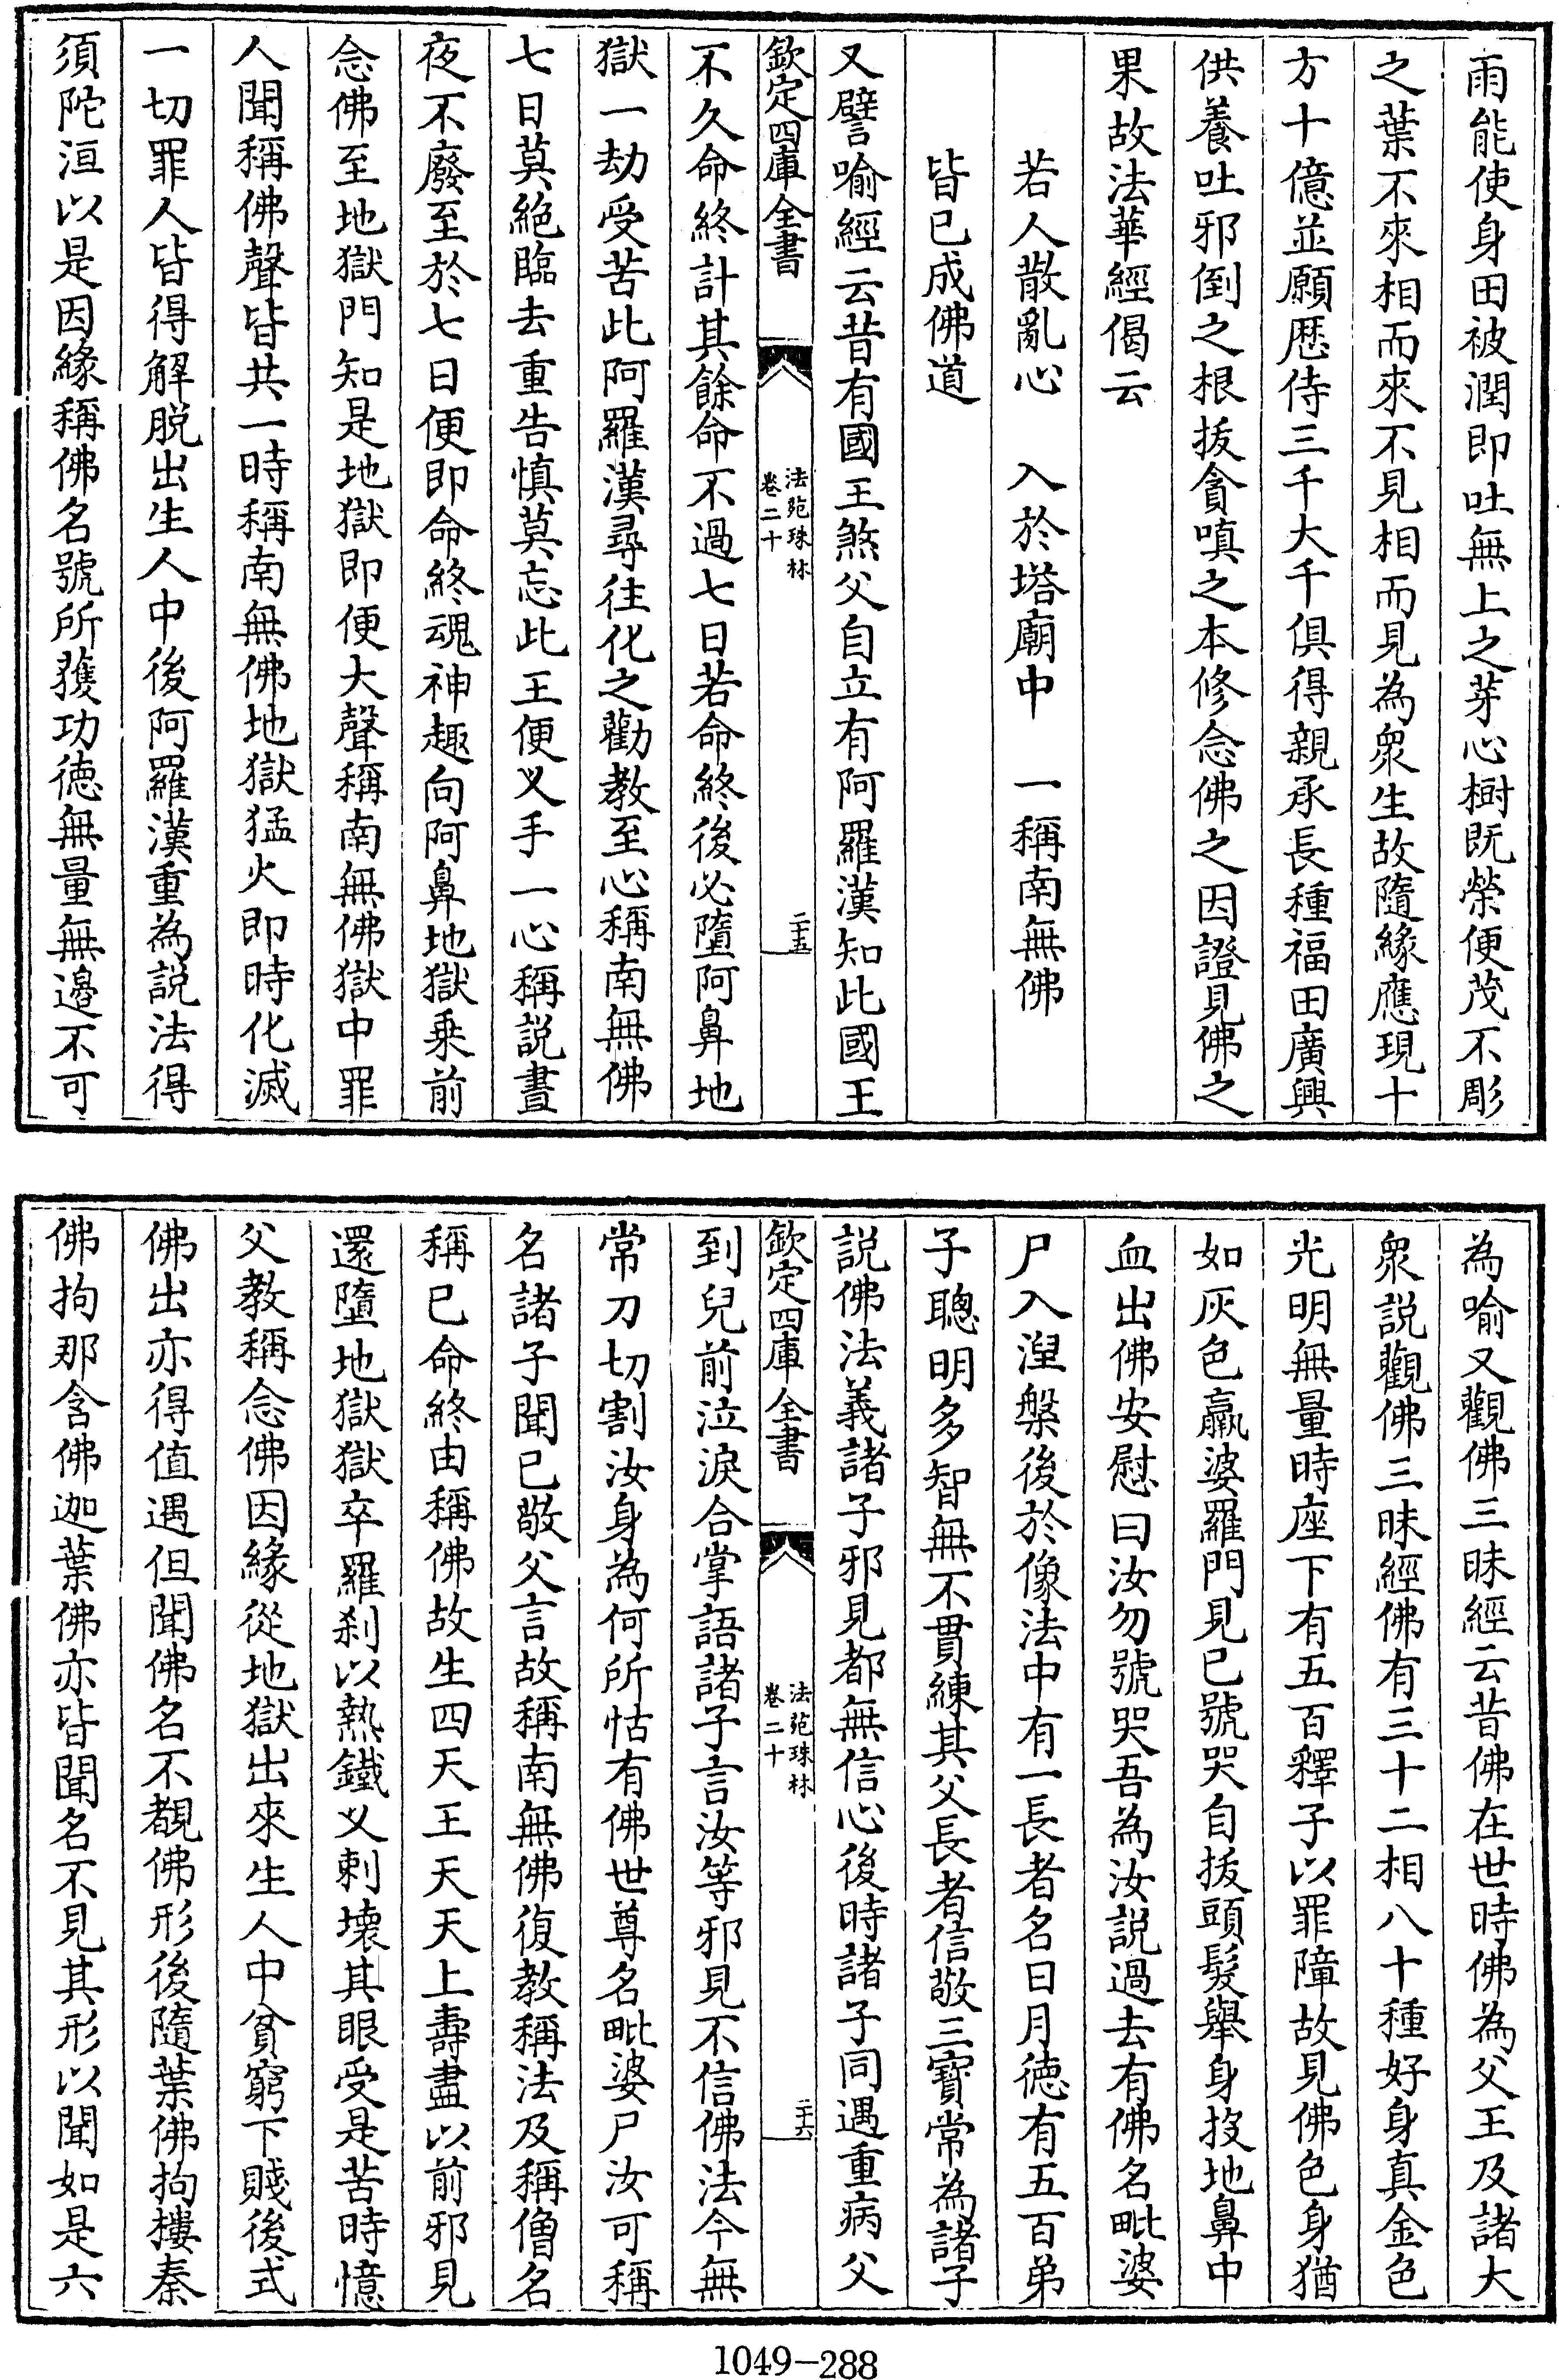 雨能使身田被潤即吐無上之芽心樹既榮便茂不彫
之葉不來相而來不見相而見為衆生故隨緣應現十
方十億並願歴侍三千大千俱得親承長種福田廣興
供養吐邪倒之根拔貪嗔之本修念佛之因證見佛之
果故法華經偈云
若人散亂心　入於塔廟中　一稱南無佛
皆已成佛道
又譬喻經云昔有國王煞父自立有阿羅漢知此國王
欽定四庫全書
法苑珠林
卷二十
二十五
不久命終計其餘命不過七日若命終後必墮阿鼻地
獄一劫受苦此阿羅漢尋往化之勸教至心稱南無佛
七日莫絶臨去重告慎莫忘此王便乂手一心稱説晝
夜不廢至於七日便即命終魂神趣向阿鼻地獄乗前
念佛至地獄門知是地獄即便大聲稱南無佛獄中罪
人聞稱佛聲皆共一時稱南無佛地獄猛火即時化滅
一切罪人皆得解脱出生人中後阿羅漢重為説法得
須陀洹以是因緣稱佛名號所獲功徳無量無邊不可
為喻又觀佛三昧經云昔佛在世時佛為父王及諸大
衆説觀佛三昧經佛有三十二相八十種好身真金色
光明無量時座下有五百釋子以罪障故見佛色身猶
如灰色羸婆羅門見已號哭自拔頭髮舉身投地鼻中
血出佛安慰曰汝勿號哭吾為汝説過去有佛名毗婆
尸入湼槃後於像法中有一長者名日月徳有五百弟
子聰明多智無不貫練其父長者信敬三寶常為諸子
説佛法義諸子邪見都無信心後時諸子同遇重病父
欽定四庫全書
法苑珠林
卷二十
二十六
到兒前泣淚合掌語諸子言汝等邪見不信佛法今無
常刀切割汝身為何所怙有佛世尊名毗婆尸汝可稱
名諸子聞已敬父言故稱南無佛復教稱法及稱僧名
稱已命終由稱佛故生四天王天天上壽盡以前邪見
還墮地獄獄卒羅刹以熱鐵乂刺壞其眼受是苦時憶
父教稱念佛因緣從地獄出來生人中貧窮下賤後式
佛出亦得值遇但聞佛名不覩佛形後隨葉佛拘摟秦
佛拘那含佛迦葉佛亦皆聞名不見其形以聞如是六
1049-288